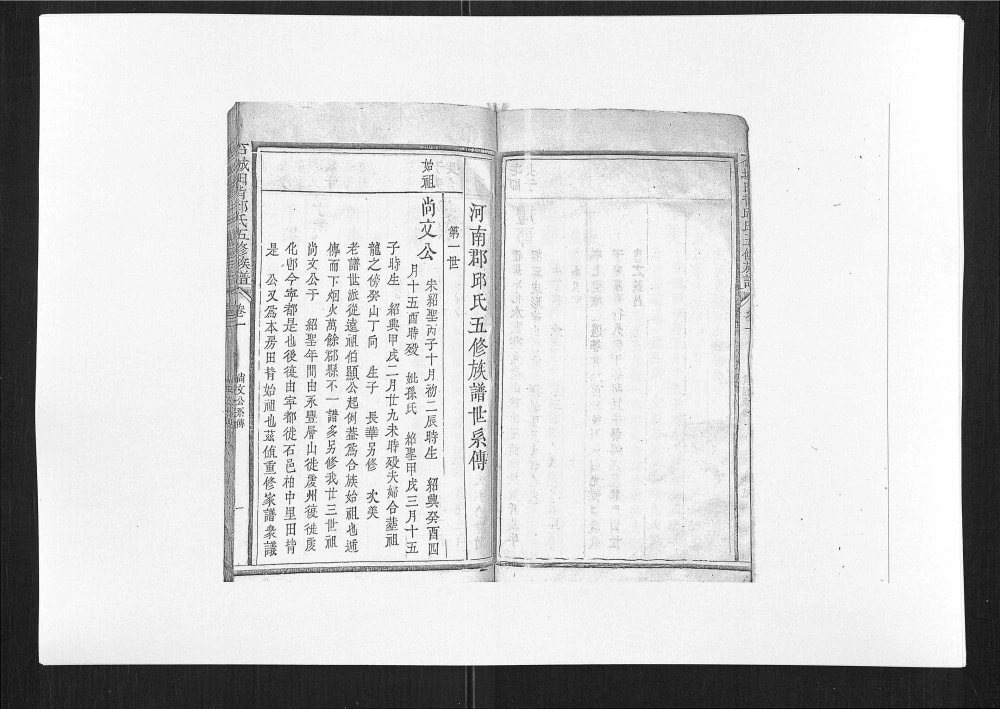 河南郡邱氏五修族譜世系傳
第一世
始祖
尚文公
宋紹聖丙子十月初二辰時生 紹興癸酉四
月十五酉時歿 妣孫氏 紹聖甲戌三月十五
子時生 紹興甲戌二月廿九未時歿夫婦合塟祖
龍之傍癸山丁向 生子 長華另修 次美
老譜世派從遠祖伯顯公起例蓋爲合族始祖也遞
傳而下烟火萬餘郡縣不一譜多另修我廿三世祖
尚文公于 紹聖年間由永豐層山徙虔州後徙虔
化卽今寧都是也後復由寧都徙石邑柏中里田背
是 公又爲本房田背始祖也茲值重修家譜衆議
城田背邱氏五修族譜
卷一
尚文公系傳
一